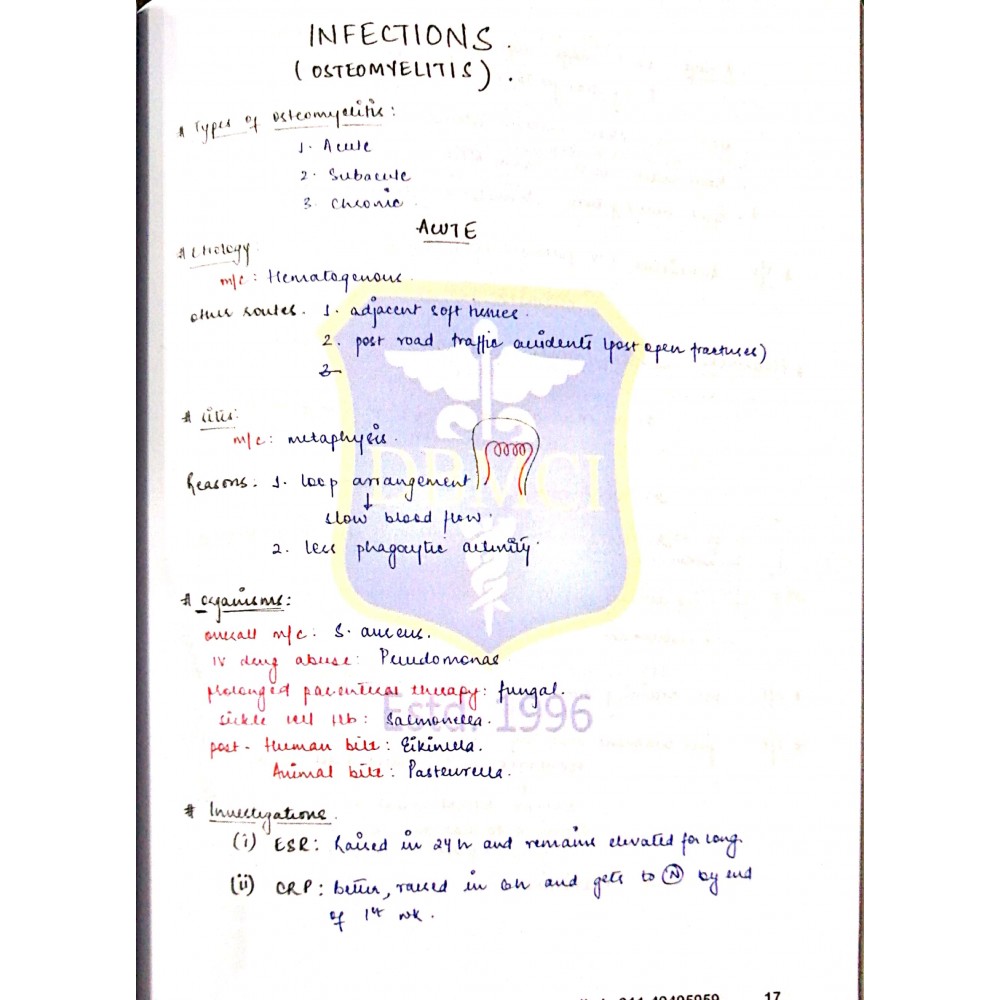 INFECTIONS.
(OSTEOMYELITIS).
# Types of Osteomyelitis:
1. Acute
2. Subacute
3. Chronic
ACUTE
# Etiology.
m/c: Hematogenous.
other routes. 1. adjacent soft tissues.
2. post road traffic accidents (post open fractures)
3
# sites:
m/c: metaphysis.
Reasons: 1. loop arrangement
↓
slow blood flow.
2. less phagocytic activity.
DBMCI
# Organisms:
overall m/c: S. aureus.
IV drug abuse: Pseudomonas
prolonged parenteral therapy: fungal.
sickle cell Hb: Salmonella.
Estd. 1996
post-Human bite: Eikinella.
Animal bite: Pasteurella.
# Investigations.
(i) ESR: Raised in 24h and remains elevated for long.
(ii) CRP: better, raised in 6h and gets to (N) by end
of 1st wk.
011-49405959 17